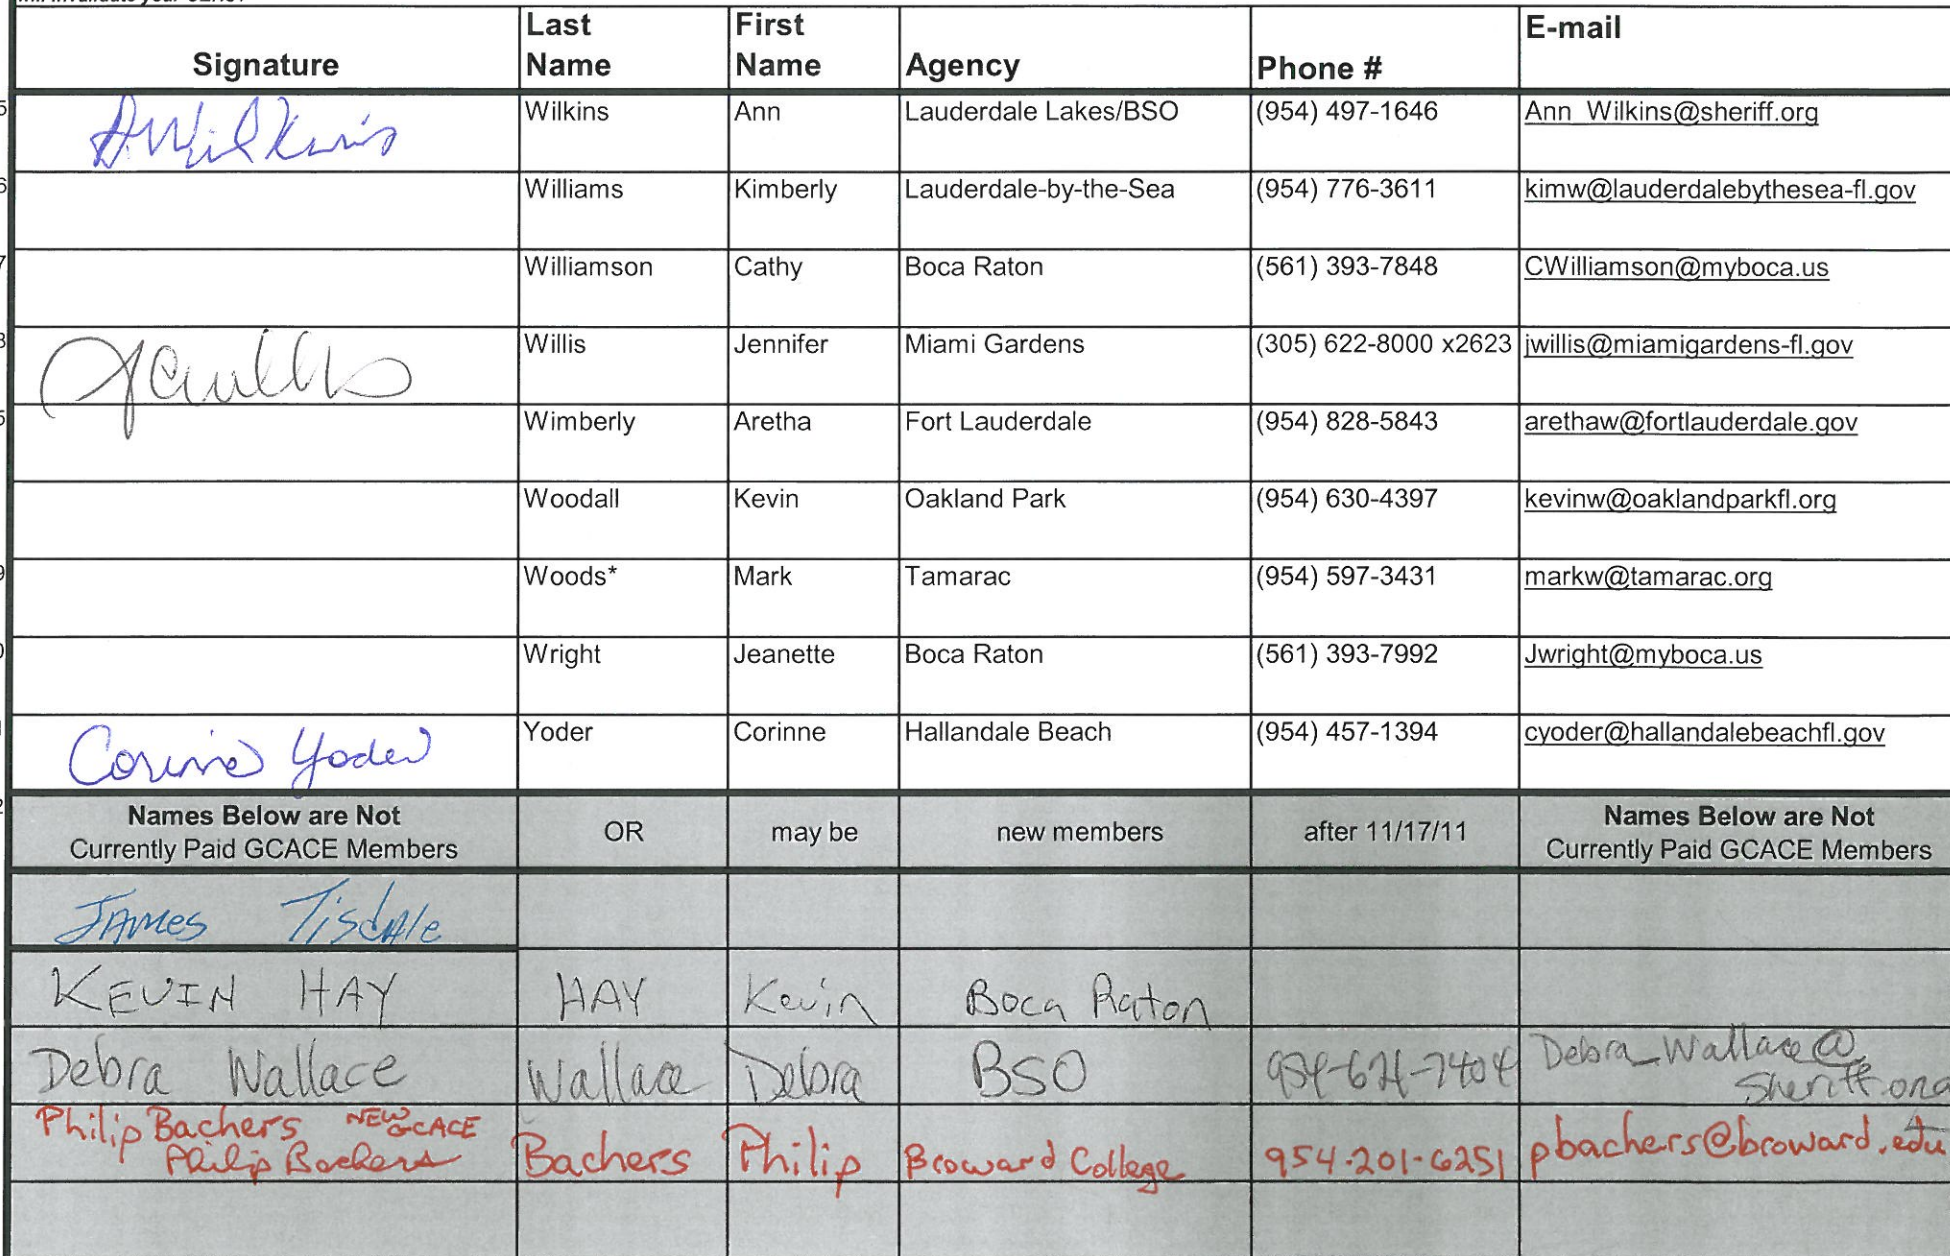 Signature Last Name First Name Agency Phone # E-mail
AWilkins Wilkins Ann Lauderdale Lakes/BSO (954) 497-1646 Ann_Wilkins@sheriff.org
Williams Kimberly Lauderdale-by-the-Sea (954) 776-3611 kimw@lauderdalebythesea-fl.gov
Williamson Cathy Boca Raton (561) 393-7848 CWilliamson@myboca.us
Willis Jennifer Miami Gardens (305) 622-8000 x2623 jwillis@miamigardens-fl.gov
Wimberly Aretha Fort Lauderdale (954) 828-5843 arethaw@fortlauderdale.gov
Woodall Kevin Oakland Park (954) 630-4397 kevinw@oaklandparkfl.org
Woods* Mark Tamarac (954) 597-3431 markw@tamarac.org
Wright Jeanette Boca Raton (561) 393-7992 Jwright@myboca.us
Corinne Yoder Yoder Corinne Hallandale Beach (954) 457-1394 cyoder@hallandalebeachfl.gov
Names Below are Not Currently Paid GCACE Members OR may be new members after 11/17/11 Names Below are Not Currently Paid GCACE Members
JAMES TisdAle
KEVIN HAY HAY Kevin Boca Raton
Debra Wallace Wallace Debra BSO Debra_Wallace@
Sheriff.org
Philip Bachers NEW GCACE
Philip Bachers Bachers Philip Broward College 954-201-6251 pbachers@broward.edu